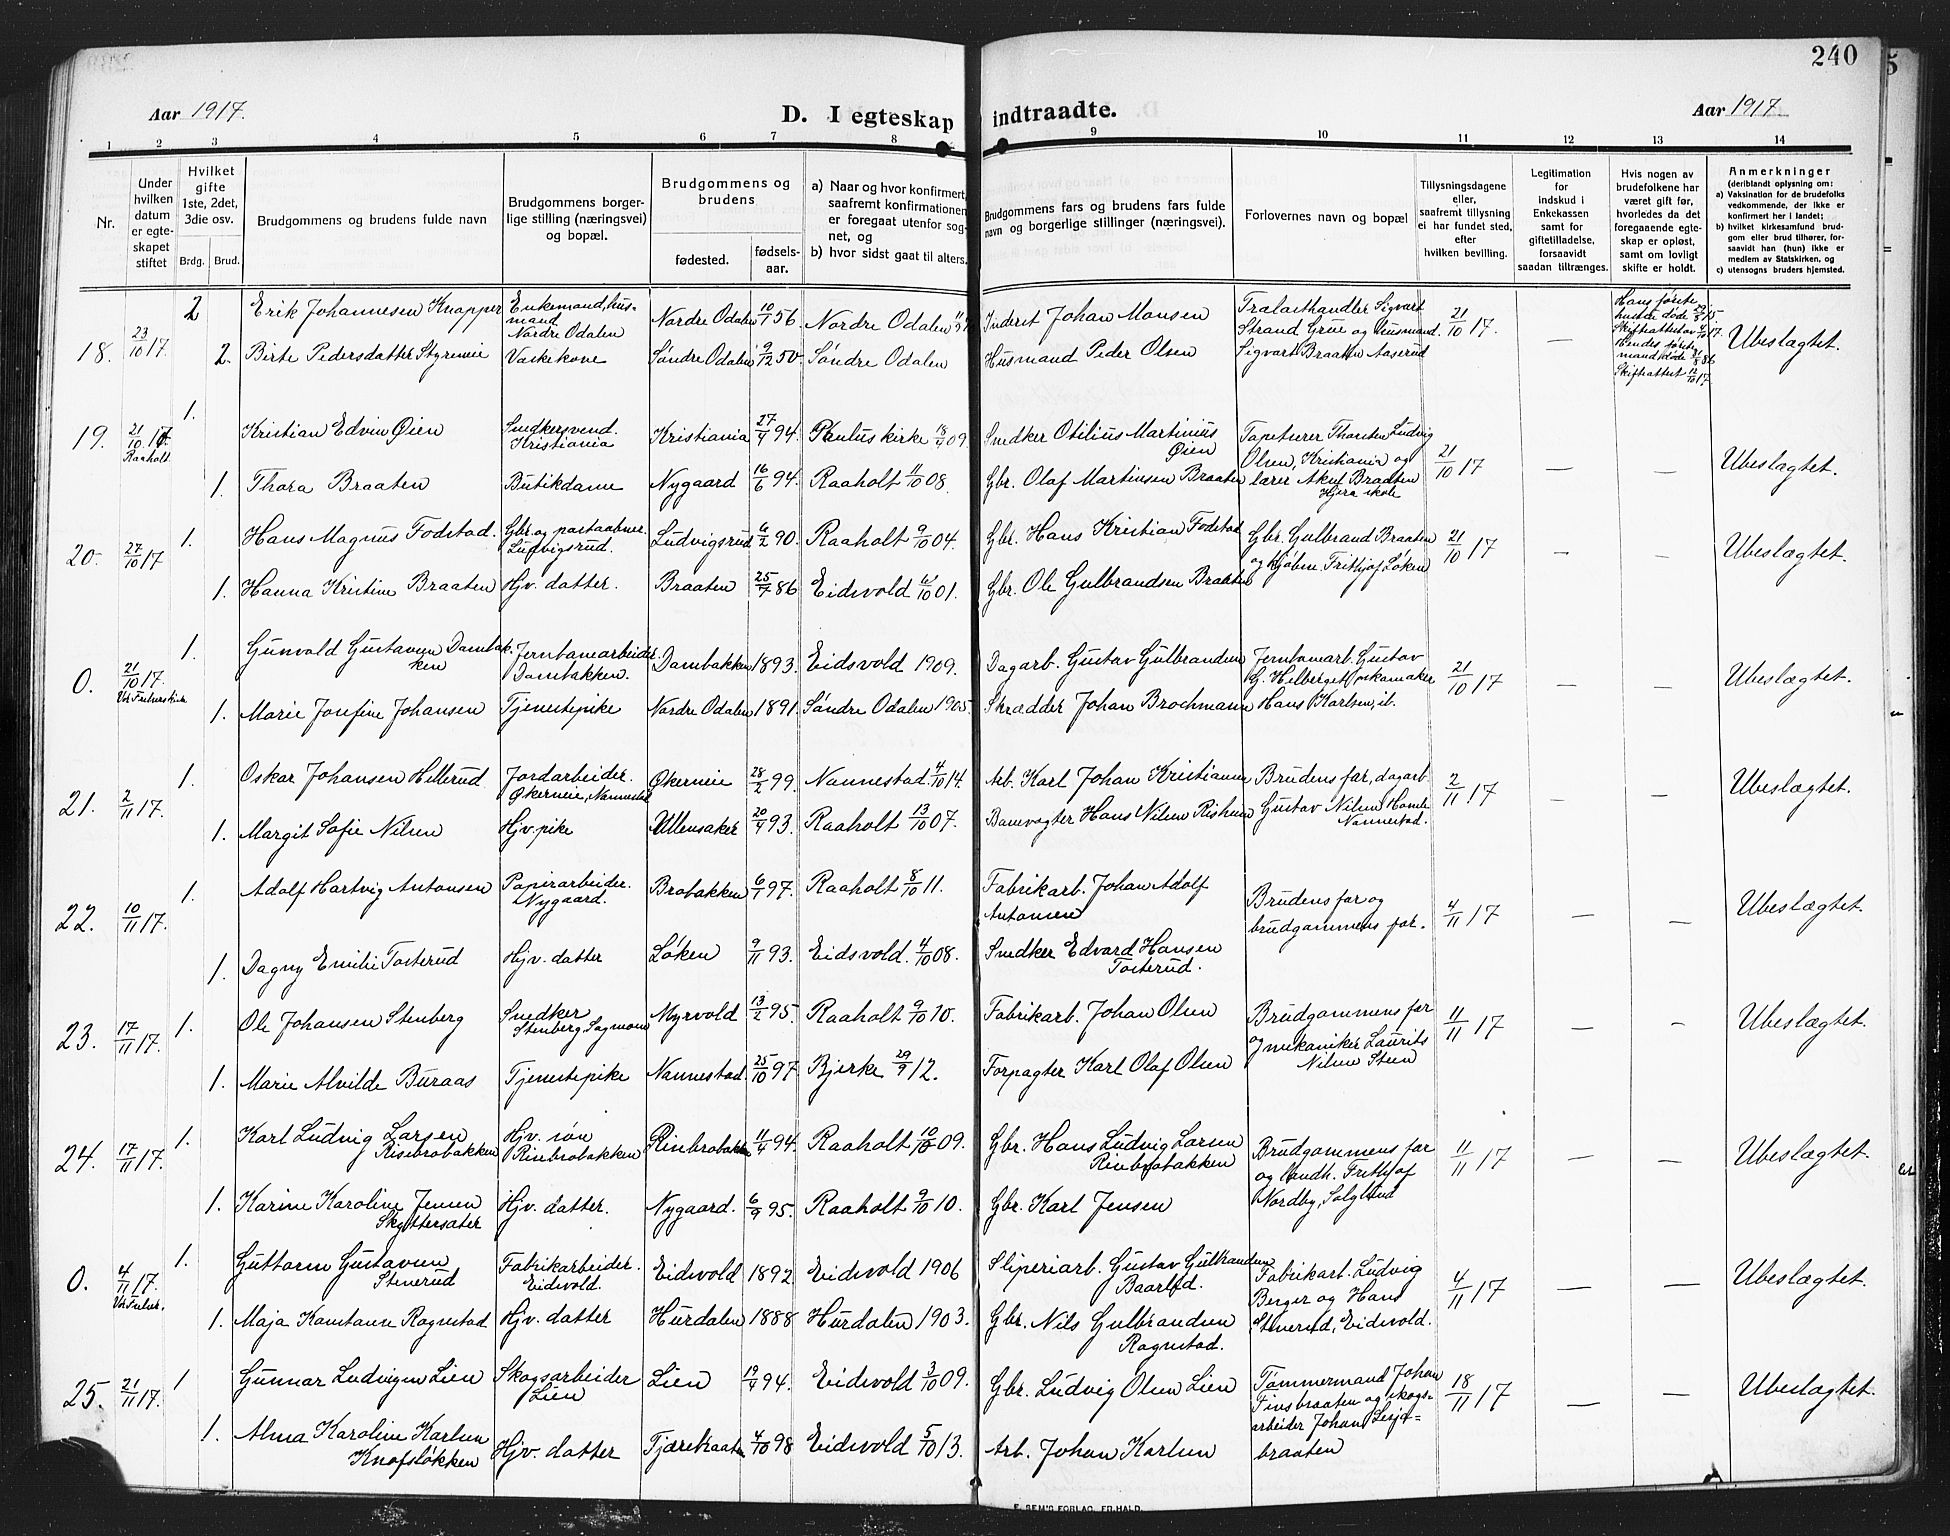 240
Aar 1917.
D. I egteskap indtraadte.
Aar 1917
1 2 3 4 5 6 7 8 9 10 11 12 13 14
Nr.
Under hvilken datum er egteskapet stiftet
Hvilket gifte 1ste, 2det, 3die osv.
Brdg. Brud.
Brudgommens og brudens fulde navn
Brudgommens borgerlige stilling (næringsvei) og bopæl.
Brudgommens og brudens
fødested.
fødselsaar.
a) Naar og hvor konfirmert, saafremt konfirmationen er foregaat utenfor sognet, og
b) hvor sidst gaat til alters.
Brudgommens fars og brudens fars fulde navn og borgerlige stillinger (næringsvei).
Forlovernes navn og bopæl
Tillysningsdagene eller, saafremt tillysning ei har fundet sted, efter hvilken bevilling.
Legitimation for indskud i Enkekassen samt for giftetilladelse, forsaavidt saadan tiltrænges.
Hvis nogen av brudefolkene har været gift før, hvorledes da det foregaaende egteskap er opløst, samt om lovligt skifte er holdt.
Anmerkninger (deriblandt oplysning om: a) Vaksination for de brudefolks vedkommende, der ikke er konfirmert her i landet; b) hvilket kirkesamfund brudgom eller brud tilhører, forsaavidt han (hun) ikke er medlem av Statskirken, og c) utensogns bruders hjemsted.
18. 23/10 17. 2 Erik Johannesen Knapper Enkemand, husmand Nordre Odalen Nordre Odalen 10/1 56. Nordre Odalen Inderst Johan Monsen Tralasthandler Sigvart Strand Grue og husmand Sigvart Braaten Aaserud 21/10 17. — Hans første hustru døde Skifteattest av Hendes første mand døde Skifteattest 12/10 17. Ubeslægtet.
2. Birte Pedersdatter Styreneie Vaskekone Søndre Odalen 9/12 50. Søndre Odalen Husmand Peder Olsen
19. 21/10 17. Raaholt 1. Kristian Edvin Øien Snedkersvend. Kristiania Kristiania 27/4 94. Paulus kirke 18/4 09. Snedker Otilius Martinius Øien Tapetserer Thorsten Ludvig Olsen, Kristiania og lærer Aksel Braaten Hjera skole 21/10 17 — — Ubeslægtet.
1. Thora Braaten Butikdame Nygaard 16/6 94. Raaholt 11/10 08. Gbr. Olaf Martinsen Braaten
20. 27/10 17 1. Hans Magnus Fodstad. Gbr. og postaabner. Ludvigsrud. Ludvigsrud 6/2 90. Raaholt 9/10 04. Gbr. Hans Kristian Fodstad Gbr. Gulbrand Braaten og kjøbm. Frithjof Løken 21/10 17 — — Ubeslægtet.
1. Hanna Kristine Braaten Hjv. datter. Braaten 25/7 86 Eidsvold 6/10 01. Gbr. Ole Gulbrandsen Braaten
0. 21/10 17. 1. Gunvald Gustavsen Dambakken Jernbanearbeider. Dambakken. Dambakken 1893. Eidsvold 1909. Dagarb. Gustav Gulbrandsen Jernbanearb. Gustav G. Helberget, skomaker Hans Karlsen, ib. 21/10 17 — — Ubeslægtet.
1. Marie Josefine Johansen Tjenestepike Nordre Odalen 1891. Søndre Odalen 1905. Skrædder Johan Brochmann
21. 2/11 17. 1. Oskar Johansen Hillerud Jordarbeider. Økerneie, Nannestad Økerneie 28/2 99. Nannestad 4/10 14. Arb. Karl Johan Kristiansen Brudens far, dagarb. Gustav Nilsen Nannestad. 2/11 17 — — Ubeslægtet.
1. Margit Sofie Nilsen Hjv. pike Ullensaker 20/4 93. Raaholt 13/10 07. Banevogter Hans Nilsen Risheim
22. 10/11 17. 1. Adolf Hartvig Antonsen Papirarbeider. Nygaard. Brobakken 6/1 97. Raaholt 8/10 11. Fabrikarb. Johan Adolf Antonsen Brudens far og brudgommens far. 4/11 17 — — Ubeslægtet.
1. Dagny Emilie Tosterud Hjv. datter Løken 9/11 93. Eidsvold. 4/10 08. Snedker Edvard Hansen Tosterud.
23. 17/11 17. 1. Ole Johansen Stenberg Snedker Stenberg, Sagmoen Myrvold 13/2 95. Raaholt 9/10 10. Fabrikarb. Johan Olsen Brudgommens far og mekaniker Laurits Nilsen Steen 11/11 17 — — Ubeslægtet.
1. Marie Alvilde Buraas Tjenestepike Nannestad. 25/10 97 Bjerke 29/9 12. Forpagter Karl Olaf Olsen
24. 17/11 17. 1. Karl Ludvig Larsen Risebrobakken Hjv. søn Risebrobakken Risebrobakken 11/4 94. Raaholt 10/10 09. Gbr. Hans Ludvig Larsen Risebrobakken Brudgommens far og landh. Frithjof Nordby, Solglimt 11/11 17 — — Ubeslægtet.
1. Karine Karoline Jensen Skyttersæter Hjv. datter. Nygaard. 6/9 95. Raaholt 9/10 10. Gbr. Karl Jensen
0. 4/11 17. 1. Guttorm Gustavsen Stenerud Fabrikarbeider. Eidsvold. Eidsvold 1892 Eidsvold 1906 Sliperiarb. Gustav Gulbrandsen Baarlid. Fabrikarb. Ludvig Berger og Hans Stenerud, Eidsvold. 4/11 17 — — Ubeslægtet.
1. Maja Konstanse Rognstad Hjv. datter Hurdalen 1888 Hurdalen 1903. Gbr. Nils Gulbrandsen Rognstad.
25. 21/11 17. 1 Gunnar Ludvigsen Lien Skogsarbeider Lien Lien 19/4 94. Eidsvold 3/10 09. Gbr. Ludvig Olsen Lien Tømmermand Johan Finsbraaten og skogsarbeider Johan braaten 18/11 17 — — Ubeslægtet.
1. Alma Karoline Karlsen Knofsløkken Hjv. datter Tjærebraaten 4/10 98 Eidsvold 5/10 13. Arb. Johan Karlsen
E. SEM'S FORLAG, FR.HALD.